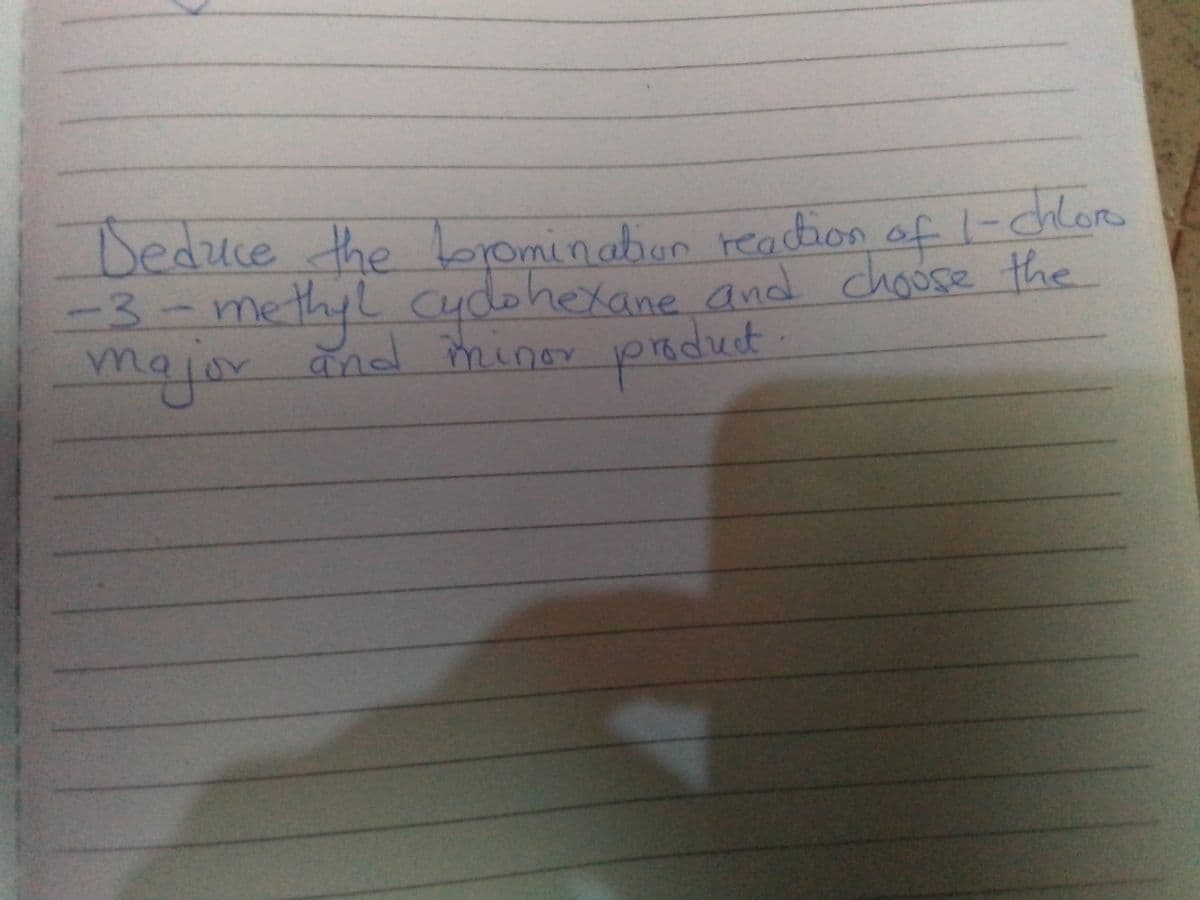 Deduce the bromination reaction of 1-chloro
-3-methyl cyclohexane and choose the
major and minor product.